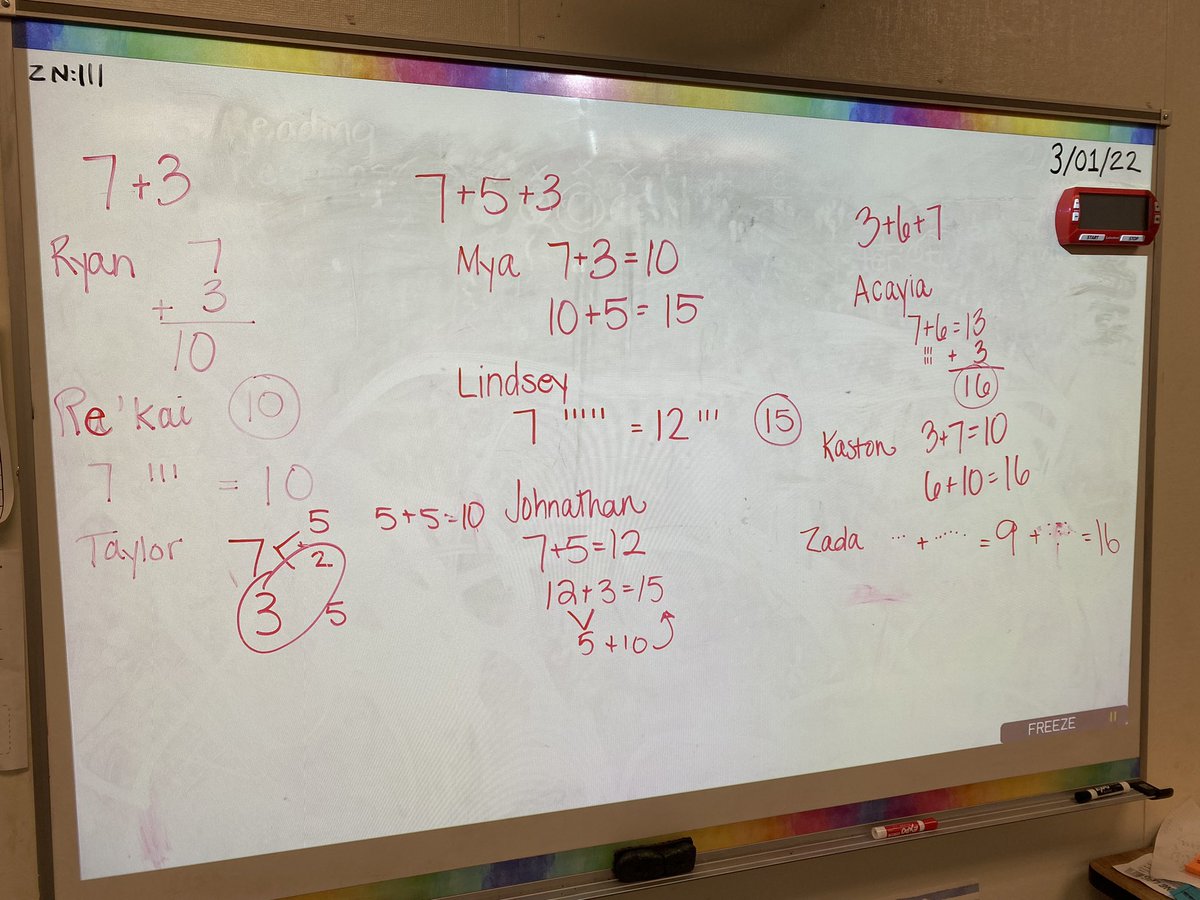 ZN:111
3/01/22
START STOP
7+3
Ryan 7
+ 3
10
Re'kai 10
7 ''' = 10
Taylor 7 5
2
3 5
5+5=10
7+5+3
Mya 7+3=10
10+5=15
Lindsey
7 ''''' = 12 ''' 15
Johnathan
7+5=12
12+3=15
5+10
3+6+7
Acayia
7+6=13
+ 3
16
Kaston 3+7=10
6+10=16
Zada ... + ...... = 9 + ....... = 16
FREEZE
EXPO